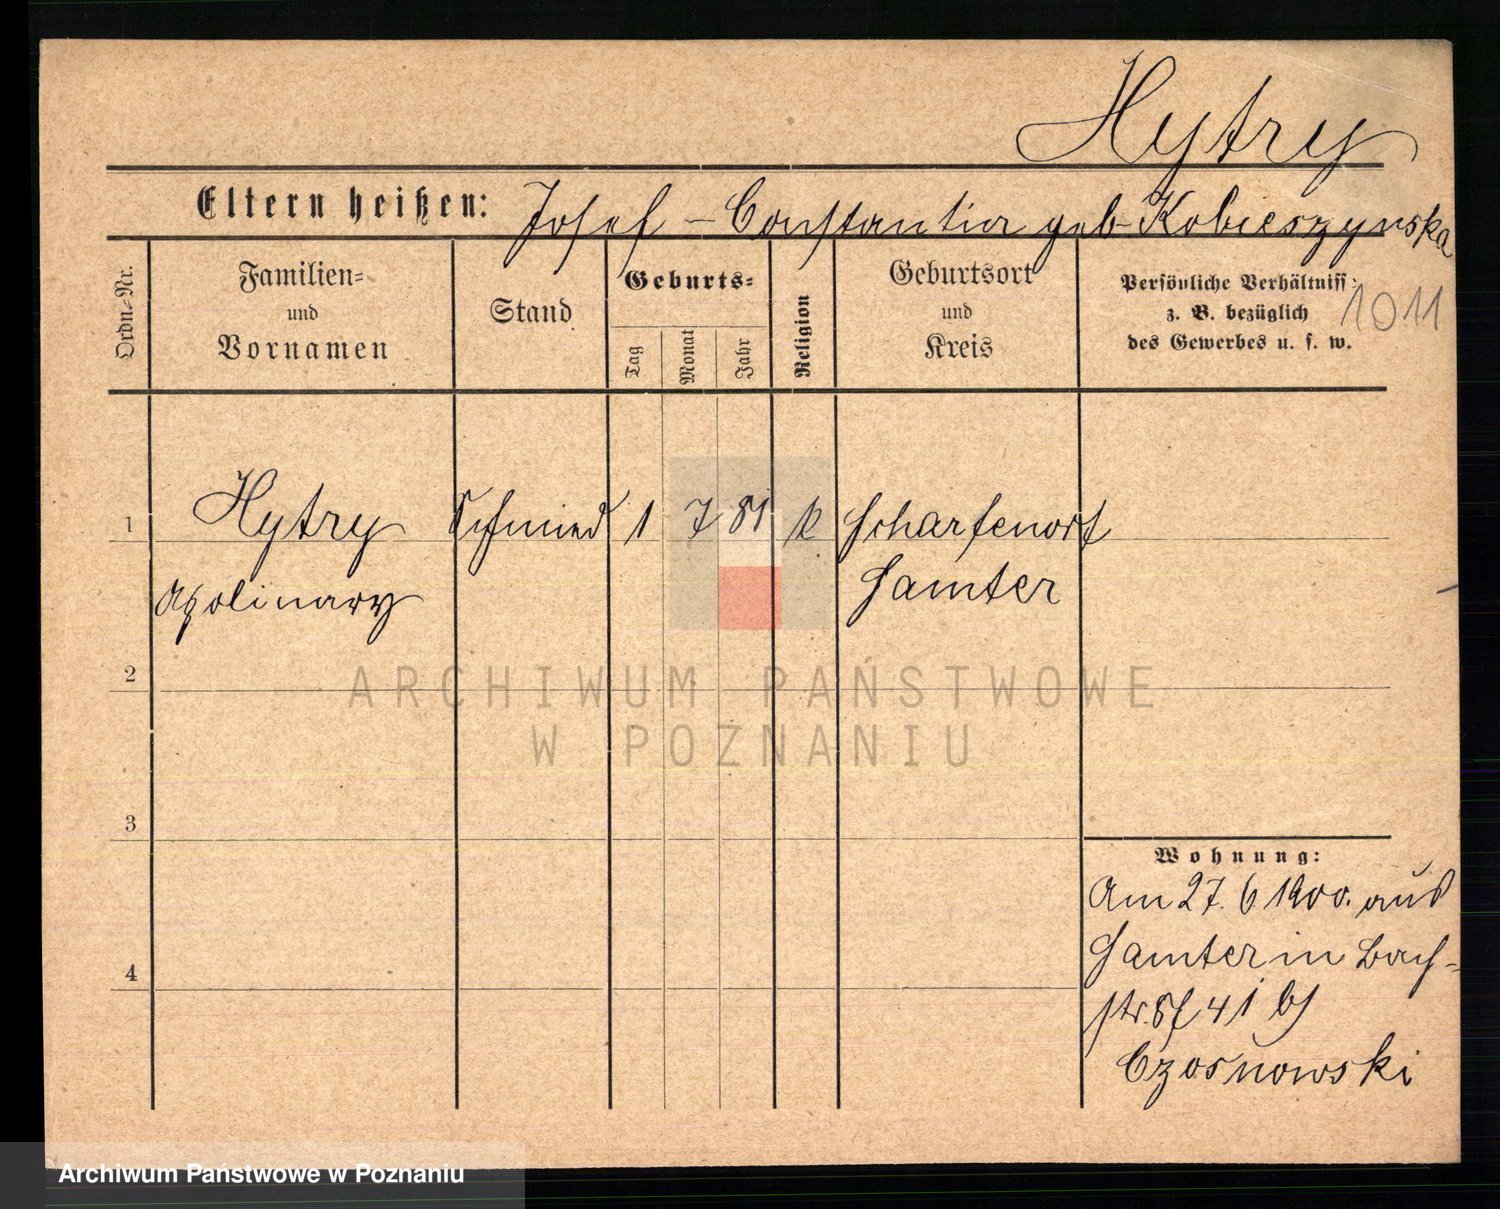 Hytry
Eltern heißen: Josef – Constantia geb Kobieszynska
Ordn.-Nr.
Familien-
und
Vornamen
Stand
Geburts-
Tag
Monat
Jahr
Religion
Geburtsort
und
Kreis
Persönliche Verhältniss:
z. B. bezüglich
des Gewerbes u. s. w.
1011
1 Hytry Schmied 1 7 81 k Scharfenort
Apolinary Samter
2
3
4
Wohnung:
Am 27. 6 1900. aus
Samter in Bach-
str. 41 bei
Czosnowski
ARCHIWUM PAŃSTWOWE
W POZNANIU
Archiwum Państwowe w Poznaniu